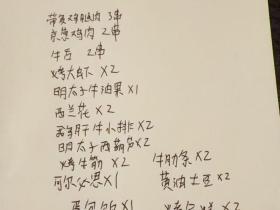 带皮鸡腿肉 3串
京葱鸡肉 2串
牛舌 2串
烤大虾 X2
明太子牛油果X1
西兰花 X2
鹅肝牛小排X2
明太子西葫芦X2
烤牛筋 X2 牛肋条 X2
可尔必思X1 黄油土豆X2